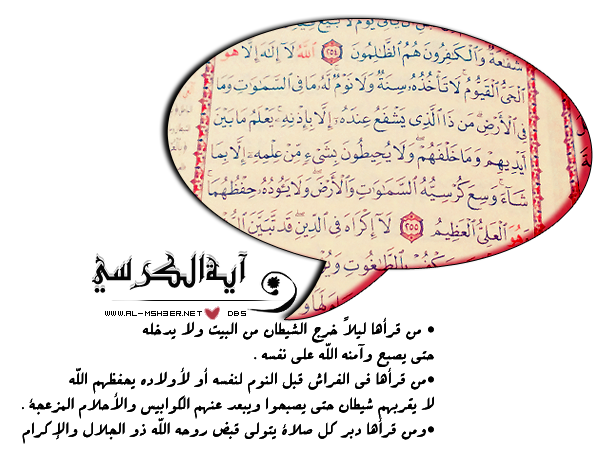 شَفَٰعَةٌ وَٱلْكَٰفِرُونَ هُمُ ٱلظَّٰلِمُونَ ٢٥٤ ٱللَّهُ لَآ إِلَٰهَ إِلَّا هُوَ
ٱلْحَىُّ ٱلْقَيُّومُ لَا تَأْخُذُهُۥ سِنَةٌ وَلَا نَوْمٌ لَّهُۥ مَا فِى ٱلسَّمَٰوَٰتِ وَمَا
فِى ٱلْأَرْضِ مَن ذَا ٱلَّذِى يَشْفَعُ عِندَهُۥٓ إِلَّا بِإِذْنِهِۦ يَعْلَمُ مَا بَيْنَ
أَيْدِيهِمْ وَمَا خَلْفَهُمْ وَلَا يُحِيطُونَ بِشَىْءٍ مِّنْ عِلْمِهِۦٓ إِلَّا بِمَا
شَآءَ وَسِعَ كُرْسِيُّهُ ٱلسَّمَٰوَٰتِ وَٱلْأَرْضَ وَلَا يَـُٔودُهُۥ حِفْظُهُمَا
وَهُوَ ٱلْعَلِىُّ ٱلْعَظِيمُ ٢٥٥ لَآ إِكْرَاهَ فِى ٱلدِّينِ قَد تَّبَيَّنَ
بِٱلطَّٰغُوتِ
آية الكرسي
WWW.AL-MSH3ER.NET DBS
• من قرأها ليلاً خرج الشيطان من البيت ولا يدخله
حتى يصبح وآمنه الله على نفسه .
•من قرأها فى الفراش قبل النوم لنفسه أو لأولاده يحفظهم الله
لا يقربهم شيطان حتى يصبحوا ويبعد عنهم الكوابيس والأحلام المزعجة .
•ومن قرأها دبر كل صلاة يتولى قبض روحه الله ذو الجلال والإكرام